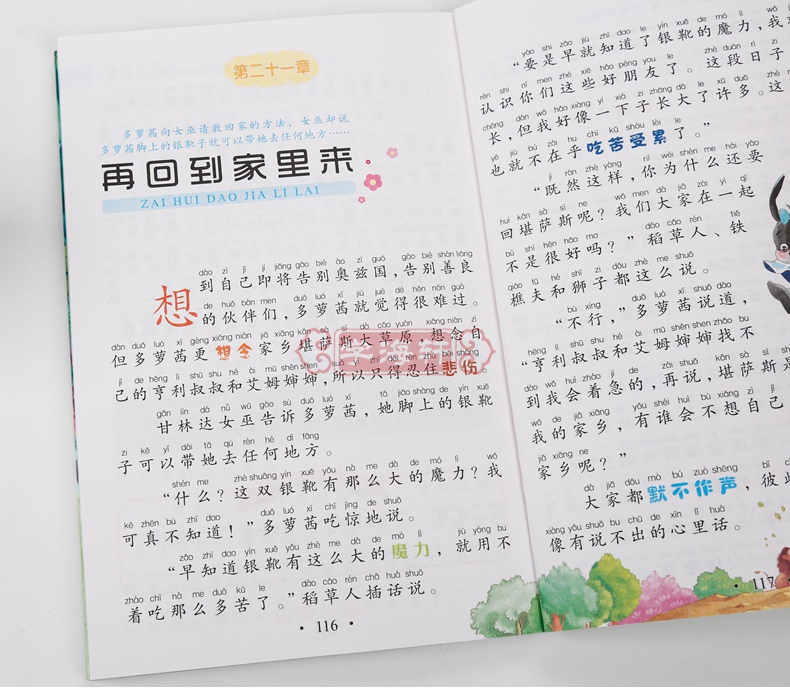 第二十一章
多萝茜向女巫请教回家的方法，女巫却说
多萝茜脚上的银靴子就可以带她去任何地方……
再回到家里来
ZAI HUI DAO JIA LI LAI
想到自己即将告别奥兹国，告别善良
的伙伴们，多萝茜就觉得很难过。
但多萝茜更想念家乡堪萨斯大草原，想念自
己的亨利叔叔和艾姆婶婶，所以只得忍住悲伤。
甘林达女巫告诉多萝茜，她脚上的银靴
子可以带她去任何地方。
“什么？这双银靴有那么大的魔力？我
可真不知道！”多萝茜吃惊地说。
“早知道银靴有这么大的魔力，就用不
着吃那么多苦了。”稻草人插话说。
· 116 ·
“要是早就知道了银靴的魔力，我
认识你们这些好朋友了。这段日子
长，但我好像一下子长大了许多。这
也就不在乎吃苦受累了。”
“既然这样，你为什么还要
回堪萨斯呢？我们大家在一起
不是很好吗？”稻草人、铁
樵夫和狮子都这么说。
“不行，”多萝茜说道，
“亨利叔叔和艾姆婶婶找不
到我会着急的，再说，堪萨斯是
我的家乡，有谁会不想自己
家乡呢？”
大家都默不作声，彼此
像有说不出的心里话。
· 117 ·